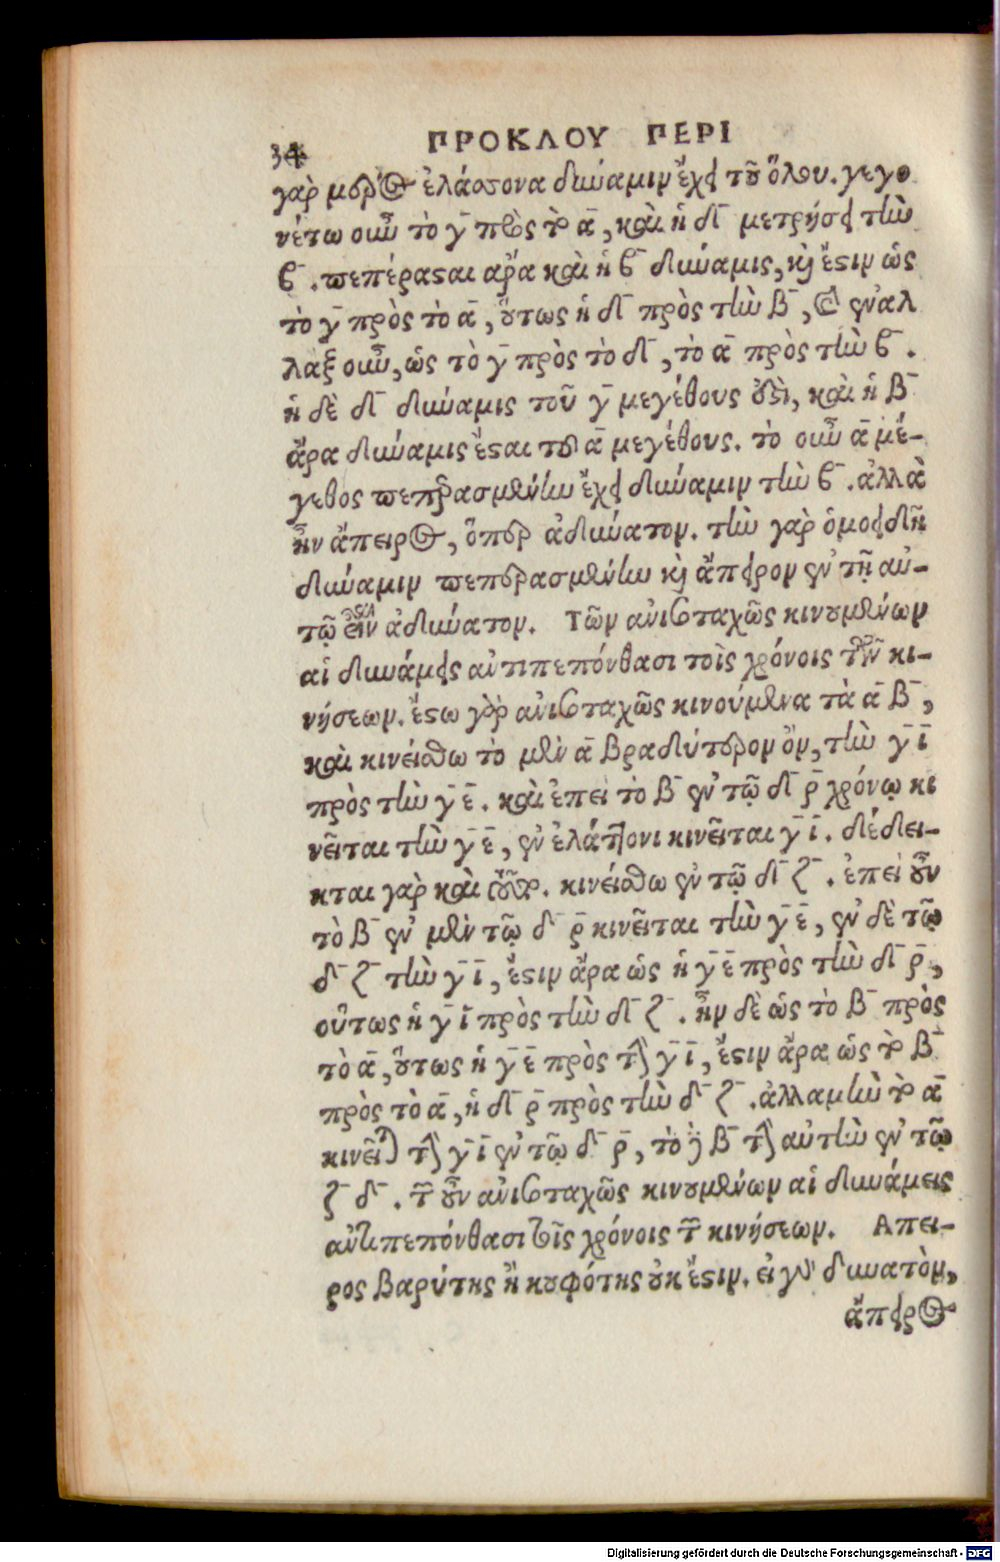 34 ΠΡΟΚΛΟΥ ΠΕΡΙ
γὰρ μέρος ἐλάσσονα δύναμιν ἔχει τοῦ ὅλου. γεγο
νέτω οὖν τὸ γ̄ πρὸς τὸ ᾱ, καὶ ἡ δ̄ μετρήσει τὴν
β̄. πεπέρασαι ἄρα καὶ ἡ β̄ δύναμις, καὶ ἔστιν ὡς
τὸ γ̄ πρὸς τὸ ᾱ, οὕτως ἡ δ̄ πρὸς τὴν β̄, καὶ ἐναλ
λὰξ οὖν, ὡς τὸ γ̄ πρὸς τὸ δ̄, τὸ ᾱ πρὸς τὴν β̄.
ἡ δὲ δ̄ δύναμις τοῦ γ̄ μεγέθους ἐστὶ, καὶ ἡ β̄
ἄρα δύναμις ἔσται τοῦ ᾱ μεγέθους. τὸ οὖν ᾱ μέ-
γεθος πεπερασμένην ἔχει δύναμιν τὴν β̄. ἀλλὰ
ἦν ἄπειρος, ὅπερ ἀδύνατον. τὴν γὰρ ὁμοειδῆ
δύναμιν πεπερασμένην καὶ ἄπειρον ἐν τῇ αὐ-
τῷ εἶναι ἀδύνατον. Τῶν ἀνισοταχῶς κινουμένων
αἱ δυνάμεις ἀντιπεπόνθασι τοῖς χρόνοις τῶν κι-
νήσεων. ἔστω γὰρ ἀνισοταχῶς κινούμενα τὰ ᾱ β̄,
καὶ κινείσθω τὸ μὲν ᾱ βραδύτερον ὂν, τὴν γ̄ ῑ
πρὸς τὴν γ̄ ε̄. καὶ ἐπεὶ τὸ β̄ ἐν τῷ δ̄ ρ̄ χρόνῳ κι
νεῖται τὴν γ̄ ε̄, ἐν ἐλάττονι κινεῖται γ̄ ῑ. δέδει-
κται γὰρ καὶ τοῦτο. κινείσθω ἐν τῷ δ̄ ζ̄. ἐπεὶ οὖν
τὸ β̄ ἐν μὲν τῷ δ̄ ρ̄ κινεῖται τὴν γ̄ ε̄, ἐν δὲ τῷ
δ̄ ζ̄ τὴν γ̄ ῑ, ἔστιν ἄρα ὡς ἡ γ̄ ε̄ πρὸς τὴν δ̄ ρ̄,
οὕτως ἡ γ̄ ῑ πρὸς τὴν δ̄ ζ̄. ἦν δὲ ὡς τὸ β̄ πρὸς
τὸ ᾱ, οὕτως ἡ γ̄ ε̄ πρὸς τὴν γ̄ ῑ, ἔστιν ἄρα ὡς τὸ β̄
πρὸς τὸ ᾱ, ἡ δ̄ ρ̄ πρὸς τὴν δ̄ ζ̄. ἀλλαμὴν τὸ ᾱ
κινεῖται τὴν γ̄ ῑ ἐν τῷ δ̄ ρ̄, τὸ δὲ β̄ τὴν αὐτὴν ἐν τῷ
ζ̄ δ̄. τῶν οὖν ἀνισοταχῶς κινουμένων αἱ δυνάμεις
ἀντιπεπόνθασι τοῖς χρόνοις τῶν κινήσεων. Απει-
ρος βαρύτης ἢ κουφότης οὐκ ἔστιν. εἰ γὰρ δυνατὸν,
ἄπειρος
Digitalisierung gefördert durch die Deutsche Forschungsgemeinschaft - DFG